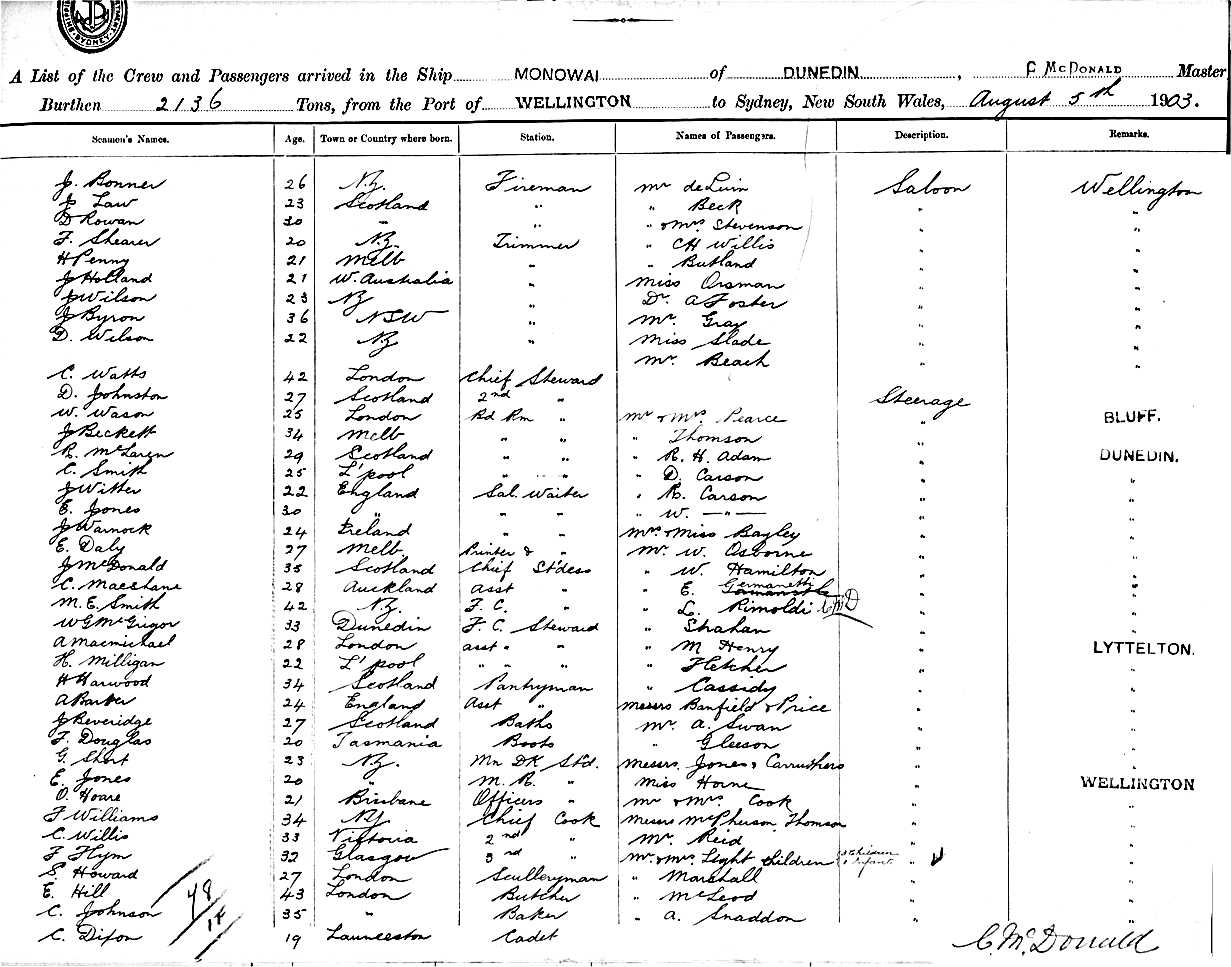 SYDNEY
A List of the Crew and Passengers arrived in the Ship MONOWAI of DUNEDIN , C McDONALD Master
Burthen 2136 Tons, from the Port of WELLINGTON to Sydney, New South Wales, August 5th 1903.
Seamen's Names. Age. Town or Country where born. Station. Names of Passengers. Description. Remarks.
J. Bonner 26 N.Z. Fireman Mr deLuin Saloon Wellington
J Law 23 Scotland " " Beck " "
D Rowan 30 " " " & Mrs Stevenson " "
F. Shearer 20 N.Z. Trimmer " CH Willis " "
H Penny 21 Melb " " Butland " "
J Holland 21 W. Australia " Miss Orsman " "
J Wilson 23 NZ " Dr. A Foster " "
J Byron 36 NSW " Mr. Gray " "
D. Wilson 22 NZ " Miss Slade " "
Mr. Beach " "
C. Watts 42 London Chief Steward
D. Johnston 27 Scotland 2nd " Steerage
W. Wason 25 London Bd Rm " Mr & Mrs. Pearce " BLUFF.
J Beckett 34 Melb " " " Thomson "
R. McLaren 29 Scotland " " " R. H. Adam " DUNEDIN.
C. Smith 25 L'pool " " " D. Carson " "
J Witter 22 England Sal. Waiter " R. Carson " "
E. Jones 30 " " " " W. —"— " "
J Warnock 24 Ireland " " Mrs & Miss Bagley " "
E. Daly 27 Melb. Printer & " Mr. W. Osborne " "
J McDonald 35 Scotland Chief St'dess " W. Hamilton " "
C. MacShane 28 Auckland Asst " " E. Germanetti " "
M. E. Smith 42 N.Z. F. C. " " L. Rimoldi CMD " "
W G McGrigor 33 Dunedin F. C. Steward " Strahan " "
A Macmichael 28 London asst " " " M Henry " LYTTELTON.
H. Milligan 22 L'pool " " " " Fletcher " "
H Harwood 34 Scotland Pantryman " Cassidy " "
A Barber 24 England Asst " Messrs Banfield & Price " "
J Beveridge 27 Scotland Baths Mr. A. Swan " "
F. Douglas 20 Tasmania Boots " Gleeson " "
G. Short 23 N.Z. Mn DK St'd. Messrs. Jones & Carruthers " "
E. Jones 20 " M. R. " Miss Horne " WELLINGTON
O. Hoare 21 Brisbane Officers " Mr & Mrs. Cook " "
F Williams 34 NZ Chief Cook Messrs McPherson, Thomson " "
C. Willis 33 Victoria 2nd " Mr. Reid " "
F Flym 32 Glasgow 3rd " Mr. & Mrs. Light children 3 children 1 infant " "
S. Howard 27 London Sculleryman " Marshall " "
E. Hill 43 London Butcher " McLeod " "
C. Johnson 35 " Baker " A. Snaddon " "
C. Dixon 19 Launceston Cadet
C. McDonald